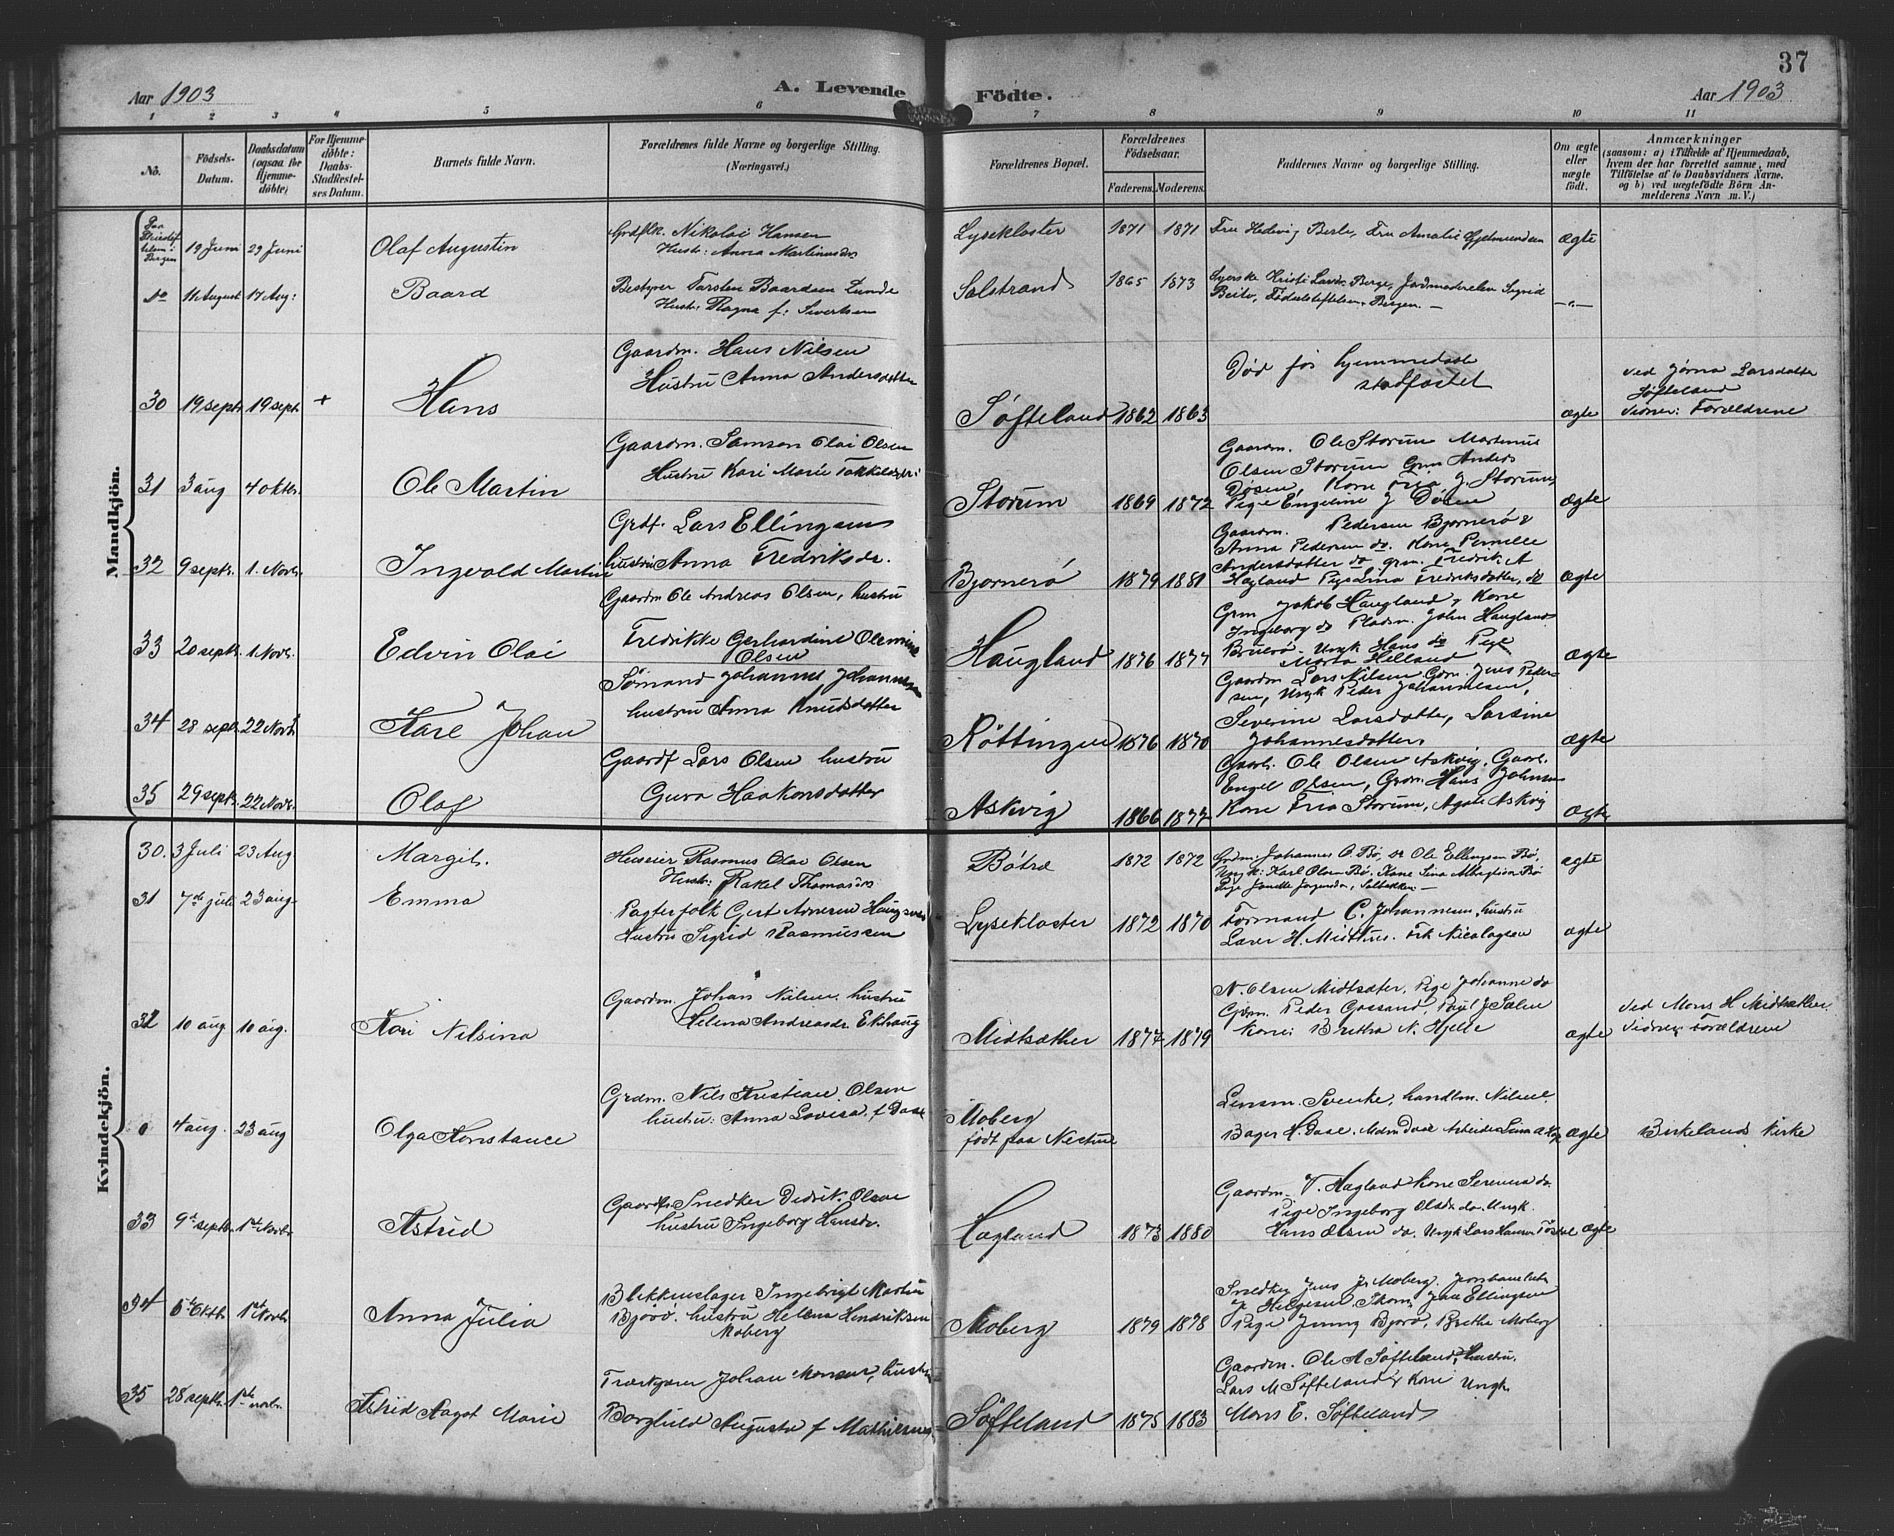 37
Aar 1903 A. Levende Födte. Aar 1903
1 2 3 4 5 6 7 8 9 10 11
No.
Födsels-Datum.
Daabsdatum (ogsaa for Hjemme-döbte)
For Hjemme-döbte: Daabs-Stadfæstel-ses Datum.
Barnets fulde Navn.
Forældrenes fulde Navne og borgerlige Stilling. (Næringsvei.)
Forældrenes Bopæl.
Forældrenes Födselsaar.
Faderens. Moderens.
Faddernes Navne og borgerlige Stilling.
Om ægte eller uægte födt.
Anmærkninger
(saasom: a) i Tilfælde af Hjemmedaab, hvem der har forrettet samme, med Tilföielse af to Daabsvidners Navne. og b) ved uægtefödte Börn An-melderens Navn m. V.)
Mandkjön.
19 Juni 29 Juni Olaf Augustin
Grdflk. Nikolai Hansen
Hustr: Anna Martinusdr
Lysekloster 1871 1871
Fru Hedvig Berle, Fru Amalie Gjelmundsen ægte
do 11 August 17 Aug: Baard
Bestyrer Torsten Baardsen Lunde
Hustr: Magna f: Sivertsen
Solstrand 1865 1873
Syerske Kristi Larsdr Berge, Jordmoderelev Sigrid
Födselsstiftelsen, Bergen — —"—
30 19 sept. 19 sept. + Hans
Gaardm. Hans Nilsen
Hustru Anna Andersdatter
Søfteland 1862 1863
Død før hjemmedaab
stadfæstet
ægte
ved Jørna Larsdatter
Søfteland
Vidner: Forældrene
31 3 aug 4 oktr. Ole Martin
Gaardm. Samson Olai Olsen
Hustru Kari Marie
Storum 1869 1872
Gaardm. Ole Storum Martinus
Olsen Storum Grm Anders
Døsen, Kone Eria J. Storum,
Pige Engeline J Døsen
ægte
32 9 septr. 1. Novbr. Ingvald Martin
Grdf. Lars Ellingsen
hustru Anna Fredriksdr.
Bjørnerö 1879 1881
Gaardm. Pedersen Bjørnerö &
Anna Pedersen do. Kone Pernille
Andersdatter do. grm. Fredrik A
Hagland Pige Lina Fredriksdatter, do
ægte
33 20 septr. 1. Novbr. Edvin Olai
Gaardm Ole Andreas Olsen, hustru
Fredrikke Gerhardine Olemine
Olsen
Haugland 1876 1877
Grm Jakob Haugland & Kone
Ingeborg do Pladsm. John Haugland
Bruerö. Ungk Hans do Pige
Marta Helland
ægte
34 28 septr. 22 Novbr Karl Johan
Sømand Johannes Johannesen
hustru Anna Knudsdatter
Røttingen 1876 1870
Gaardm Lars Nilsen Grm. Jens Peder-
sen, Ungk Peder Johannesen,
Severine Larsdatter, Larsine
Johannesdatter
ægte
35 29 septr. 22 Novbr. Olaf
Gaardf Lars Olsen hustru
Guro Haakonsdatter
Askvig 1866 1877
Gaardb. Ole Olsen Askvig, Gaardb.
Engel Olsen, Grdm. Hans Johnsen
Kone Eria Storum, Agate Askvig
ægte
Kvindekjön.
30. 3 Juli 23 Aug. Margit.
Huseier Rasmus Olai Olsen
Hustr: Rakel Thomasdr
Bøtræ 1872 1872
Grdm. Johannes O. Bø, do Ole Ellingsen Bø,
Ungk: Karl Olsen Bø, Kone Lina Albrigtsen Bø
ægte
31 7de juli 23 aug. Emma
Pagterfolk Gert Arnesen Haugsvær
Hustru Sigrid Rasmussen
Lysekloster 1872 1870
Formand C. Johannesen, hustru
Laver H. Midttun. Frk Nicolaysen
ægte
32 10 aug 10 aug. Kari Nilsina
Gaardm. Johan Nilsen, hustru
Helena Andreasdr. Ekhaug
Midtsæther 1877 1879
N. Olsen Midtsæter, Pige Johanne do
Grm. Peder Gaasand, Paul J Sælen
Kone: Bretha N. Hjelle
ægte
ved Mons H Midtsæther
Vidner Forældrene
0 4 aug. 23 aug Olga Konstance
Grdm. Nils Kristian Olsen
hustru: Anna Lovisa f Daae
Moberg
født paa Nestun
Lensm. Svenke, handlm. Nilsen,
Bager H. Daae.
ægte
Birkeland Kirke
33 9de septr. 1ste Novbr Astrid
Gaardbr. Snedker Didrik Olsen
hustru Ingeborg Hansdr.
Hagland 1873 1880
Gaardm. T. Hagland Kone Serina do
Pige Ingeborg Olsdr. do. Ungk.
Hans Olsen do. Ungk Lars Hansen
ægte
34 6te Oktb. 1ste Novbr Anna Julia
Blikkenslager Ingebrigt Martin
Bjørö. hustru Helena Hendriksen
Moberg
Moberg 1879 1878
Snedker Jens J. Moberg.
Pige Jenny Bjørö, Brethe Moberg
35 28 septr. 1ste novbr. Astrid Aagot Marie
Johan Monsen, hustru
Borghild Augusta f Mathiesen
Søfteland 1875 1883
Gaardm. Ole A Søfteland, Hustru.
Lars M Søfteland & Kone Ungk.
Mons E. Søfteland